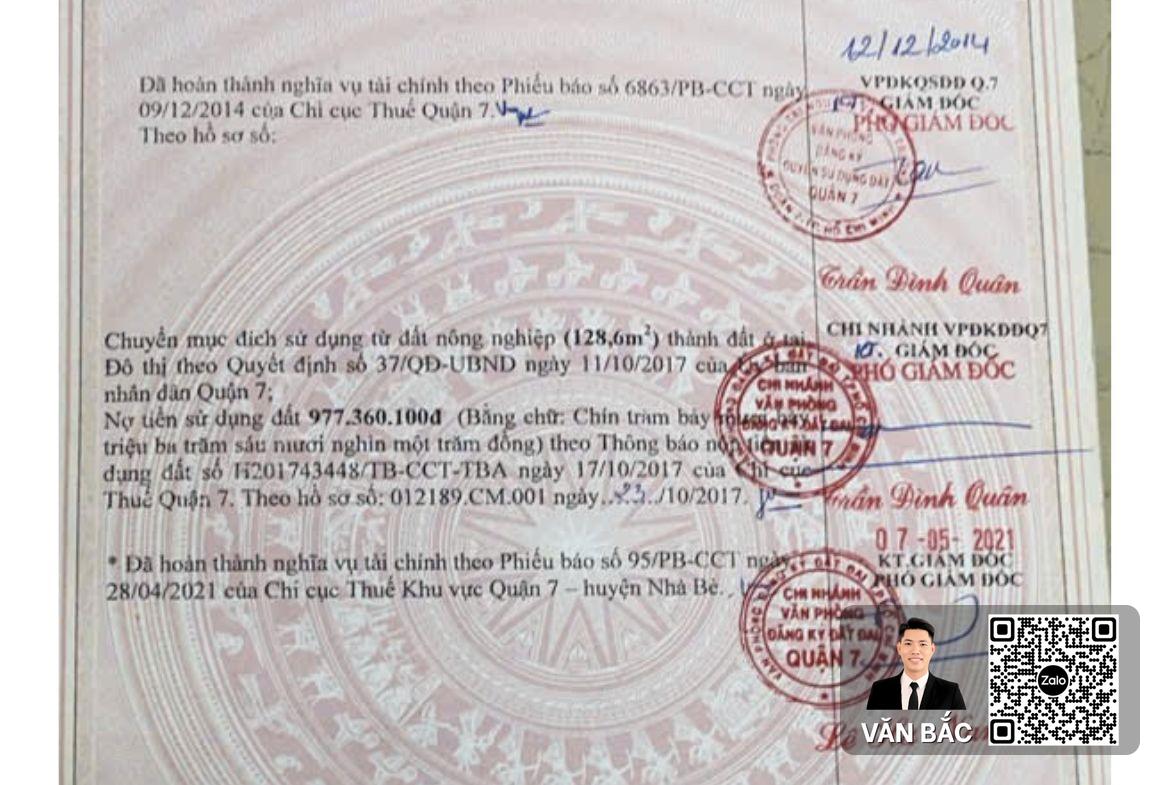 12/12/2014
Đã hoàn thành nghĩa vụ tài chính theo Phiếu báo số 6863/PB-CCT ngày
09/12/2014 của Chi cục Thuế Quận 7.
Theo hồ sơ số:
VPĐKQSDĐ Q.7
GIÁM ĐỐC
PHÓ GIÁM ĐỐC
VĂN PHÒNG
ĐĂNG KÝ
QUYỀN SỬ DỤNG ĐẤT
QUẬN 7
Trần Đình Quân
Chuyển mục đích sử dụng từ đất nông nghiệp (128,6m²) thành đất ở tại
Đô thị theo Quyết định số 37/QĐ-UBND ngày 11/10/2017 của Ủy ban
nhân dân Quận 7;
Nợ tiền sử dụng đất 977.360.100đ (Bằng chữ: Chín trăm bảy mươi bảy
triệu ba trăm sáu mươi nghìn một trăm đồng) theo Thông báo nộp tiền
dụng đất số H201743448/TB-CCT-TBA ngày 17/10/2017 của Chi cục
Thuế Quận 7. Theo hồ sơ số: 012189.CM.001 ngày..23../10/2017.
CHI NHÁNH VPĐKĐĐQ7
GIÁM ĐỐC
PHÓ GIÁM ĐỐC
CHI NHÁNH
VĂN PHÒNG
ĐĂNG KÝ ĐẤT ĐAI
QUẬN 7
Trần Đình Quân
07-05-2021
* Đã hoàn thành nghĩa vụ tài chính theo Phiếu báo số 95/PB-CCT ngày
28/04/2021 của Chi cục Thuế Khu vực Quận 7 – huyện Nhà Bè.
KT.GIÁM ĐỐC
PHÓ GIÁM ĐỐC
CHI NHÁNH
VĂN PHÒNG
ĐĂNG KÝ ĐẤT ĐAI
QUẬN 7
Lê
VĂN BẮC
Zalo